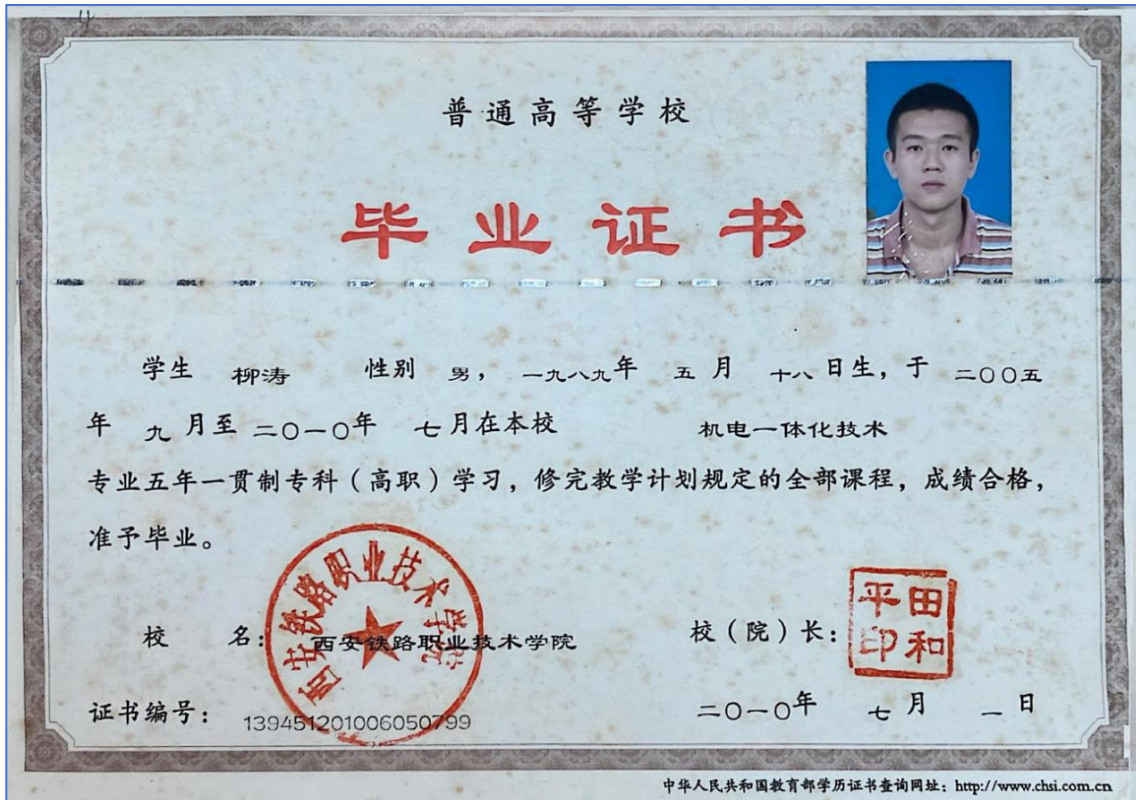 4
普通高等学校
毕业证书
学生 柳涛 性别 男，一九八九年 五月 十八日生，于 二〇〇五
年 九月至 二〇一〇年 七月在本校 机电一体化技术
专业五年一贯制专科（高职）学习，修完教学计划规定的全部课程，成绩合格，
准予毕业。
西安铁路职业技术学院
校 名：西安铁路职业技术学院 校（院）长：
田和平印
证书编号：139451201006050799 二〇一〇年 七月 一日
中华人民共和国教育部学历证书查询网址：http://www.chsi.com.cn